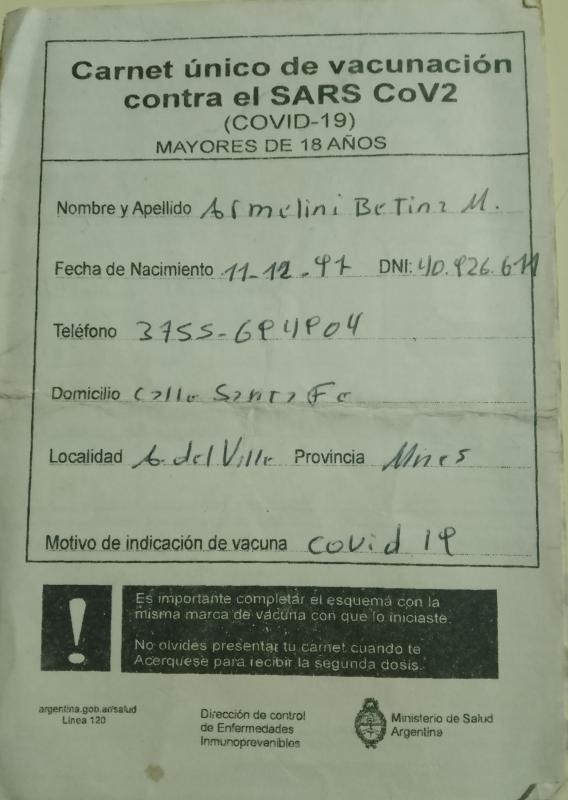 Carnet único de vacunación
contra el SARS CoV2
(COVID-19)
MAYORES DE 18 AÑOS
Nombre y Apellido Armelini Betina M.
Fecha de Nacimiento 11-12.97 DNI: 40.926.611
Teléfono 3755-694904
Domicilio Calle Santa Fe
Localidad A. del Valle Provincia Mnes
Motivo de indicación de vacuna Covid 19
Es importante completar el esquema con la
misma marca de vacuna con que lo iniciaste.
No olvides presentar tu carnet cuando te
Acerquese para recibir la segunda dosis.
argentina.gob.ar/salud
Línea 120
Dirección de control
de Enfermedades
Inmunoprevenibles
Ministerio de Salud
Argentina